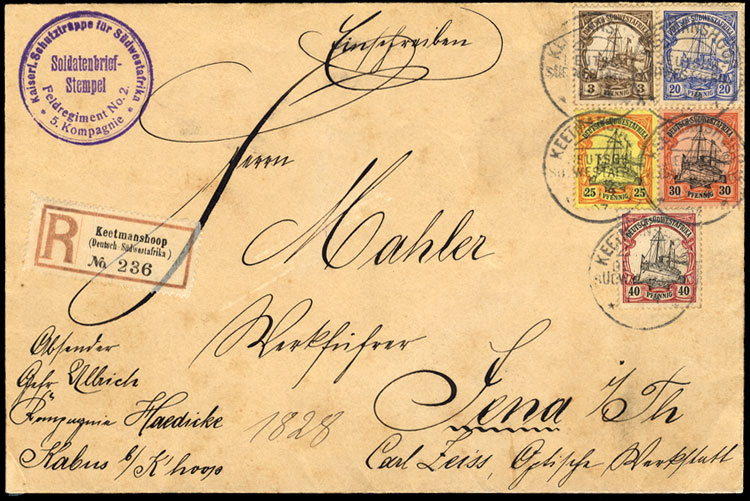 Kaiserl. Schutztruppe für Südwestafrika
Soldatenbrief-
Stempel
Feldregiment No. 2.
* 5. Kompagnie *
Einschreiben
DEUTSCH-SÜDWESTAFRIKA
3 PFENNIG 3
20 PFENNIG 20
25 PFENNIG 25
DEUTSCH-SÜDWESTAFRIKA
30 PFENNIG 30
DEUTSCH-SÜDWESTAFRIKA
40 PFENNIG 40
R
Keetmanshoop
(Deutsch-Südwestafrika)
No. 236
Herrn
Mahler
Werkführer
Jena i/Th
Carl Zeiss, Optische Werkstatt
Absender
Gefr Ullrich
Kompagnie Haedicke
Kabus b/ K'hoop
1828